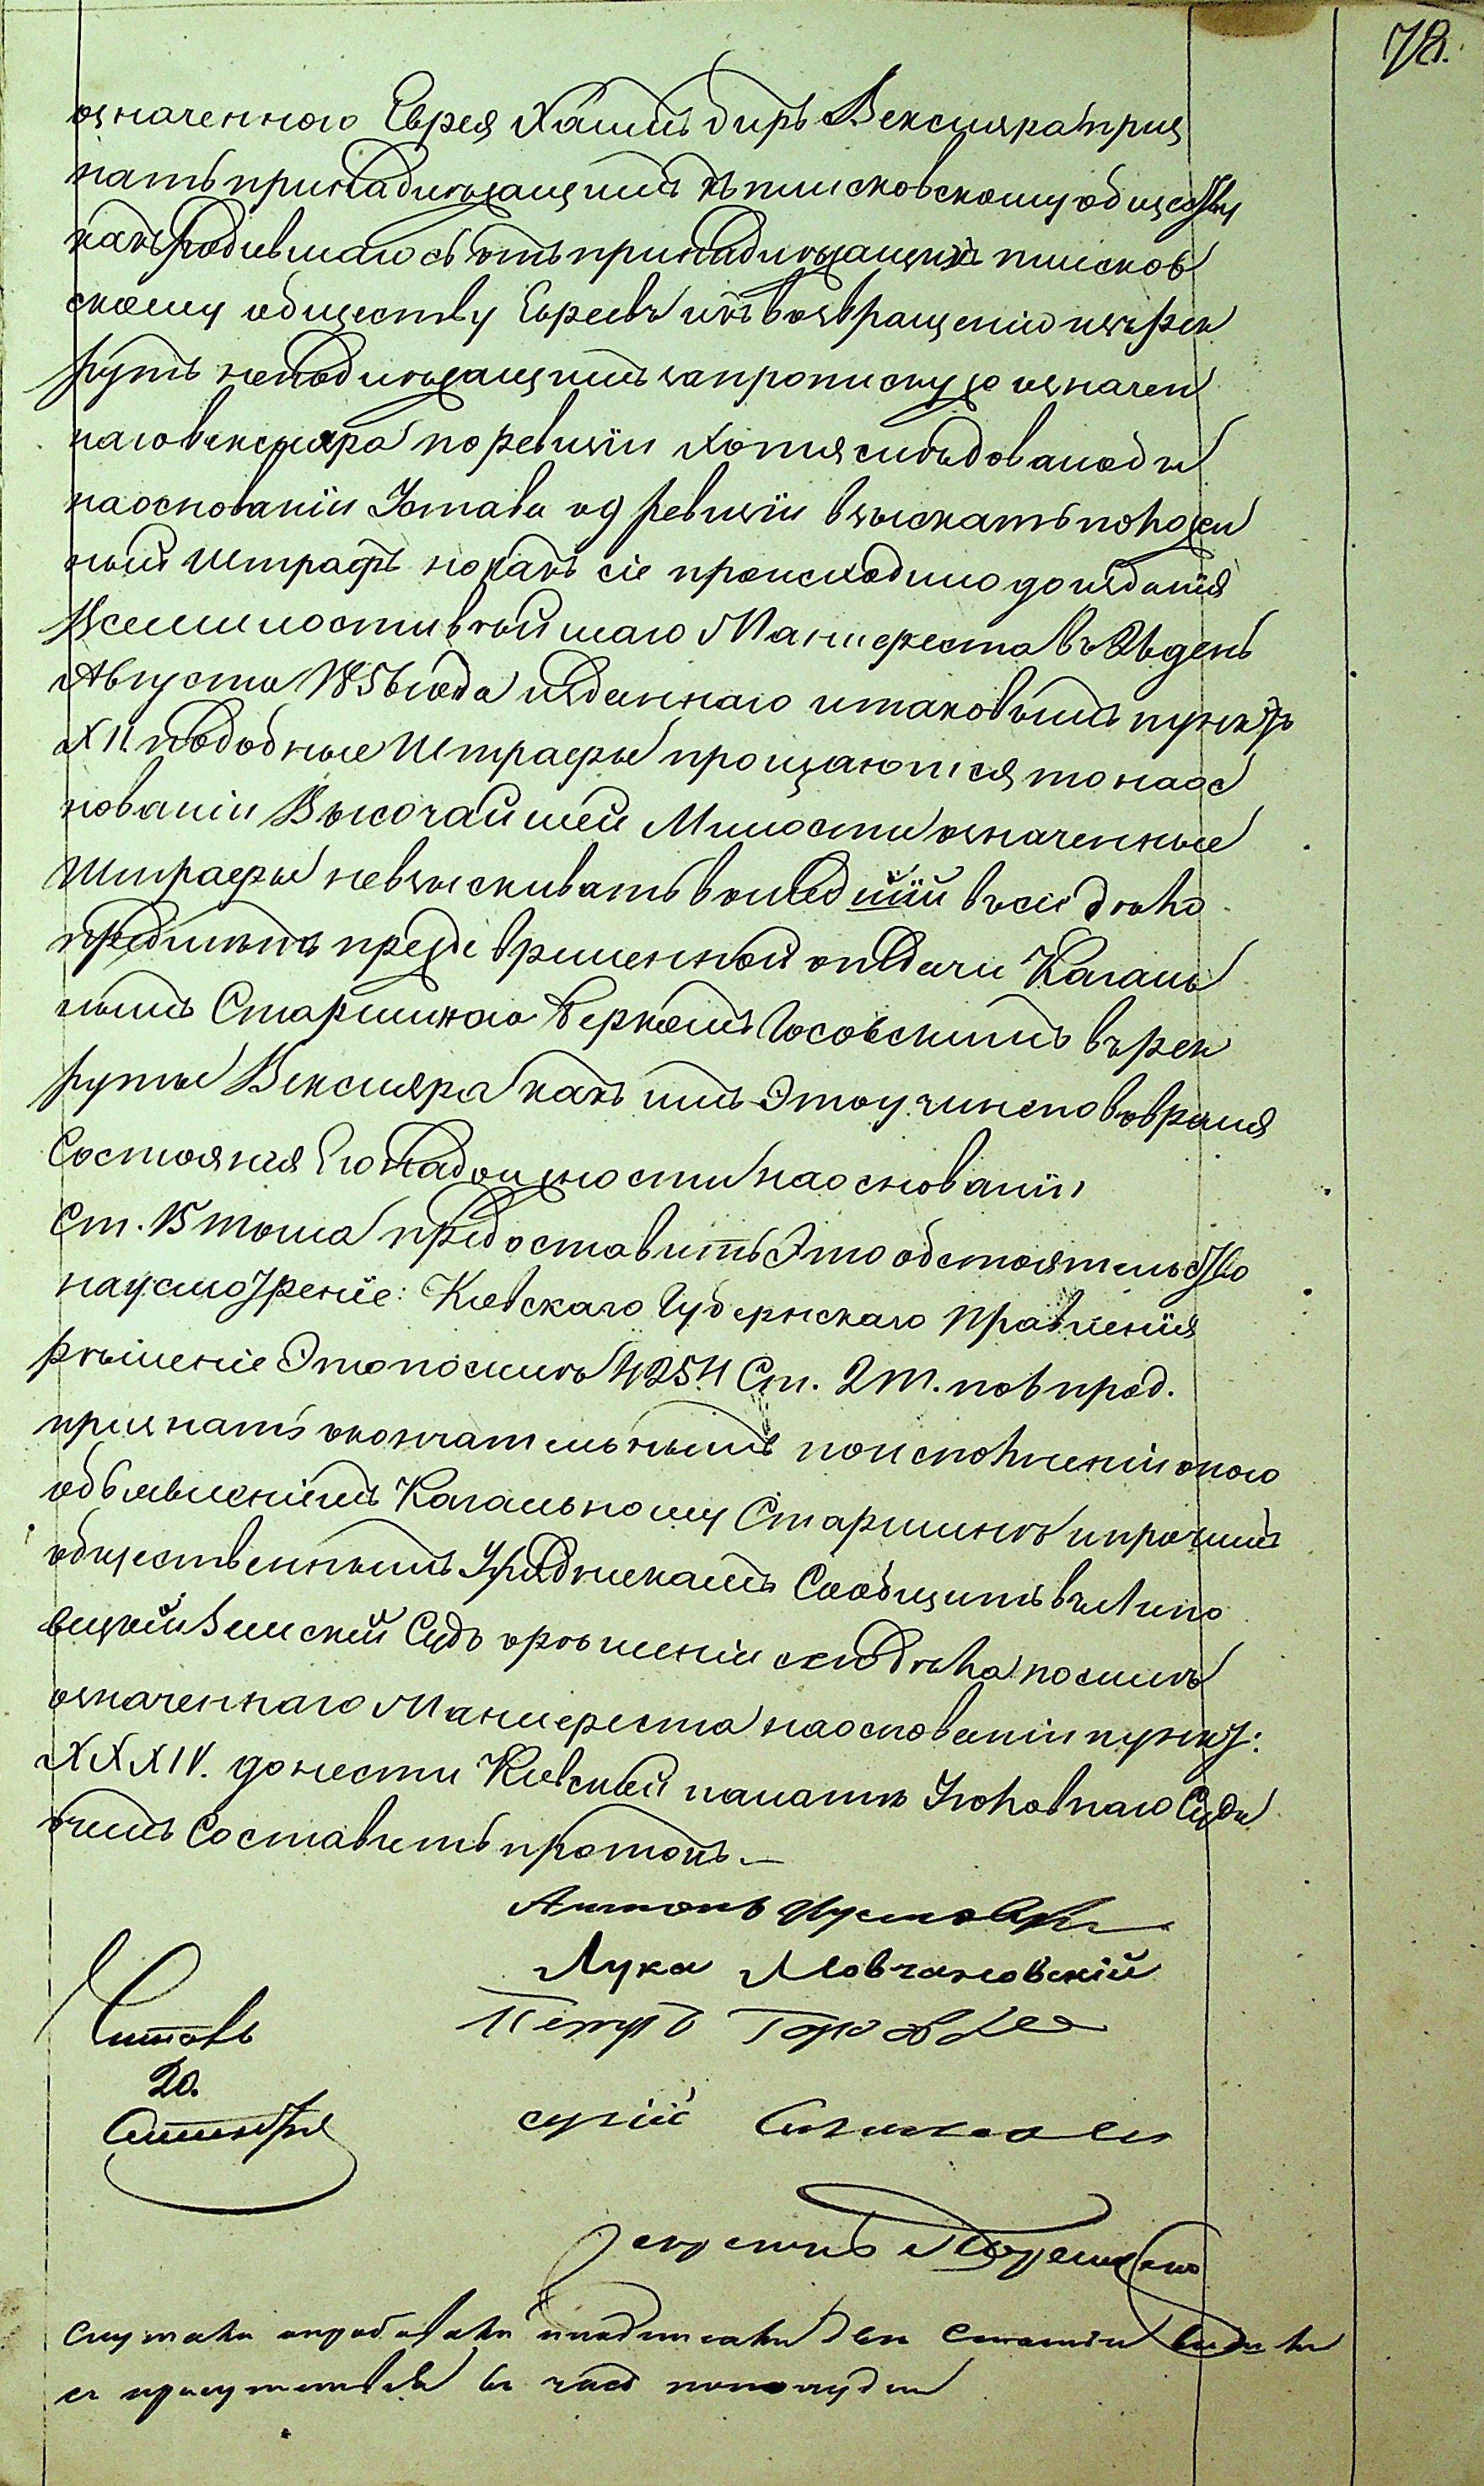 78.
означенного Еврея Хаимъ Биръ Вексляра приз
нать принадлежащимъ къ плисковскому обществу
какъ родившагося отъ принадлежащихъ плисков
скому обществу Евреевъ и къ возвращенію изъ рек
рутъ неподлежащимъ за прописку же означен
наго вексляра по ревизіи хотя слѣдовало бы
на основаніи Устава од ревизіи взыскать положен
ный штрафъ но какъ сіе происходило до изданія
Всемилостивѣйшаго Манифеста въ 26 день
Августа 1856 года изданнаго и таковымъ пунктъ
XII подобные штрафы прощаются то на ос
нованіи Высочайшей Милости означенные
Штрафы невзыскивать вошедшій въ сіе дѣло
предметъ преждевременной отдачи Кагаль
нымъ Старшиною Беркомъ Іосовскимъ въ рек
руты Вексляра какъ имъ это учинено вовремя
состоянія Его въ должности на основаніи
Ст. 15 тома предоставить это обстоятельство
на усмотреніе: Кіевскаго Губернскаго Правленія
рѣшеніе это по силѣ 4254 Ст. 2 т. по в прод.
признать окончательнымъ по исполненіи оного
объявленіемъ Кагальному Старшинѣ и прочимъ
общественнымъ Урядникамъ Сообщить въ Липо
вецкій Земскій Судъ о рѣшеніи сего дѣла по силѣ
означеннаго Манифеста на основаніи пункт:
XXXIV. донести Кіевской палатѣ Уголовнаго Суда
о чемъ Составить протокъ.
Антонъ
Лука Мовчановскій
Петръ
Читалъ
20.
Сентября
слушали апробовали и подписали
въ часъ пополудни